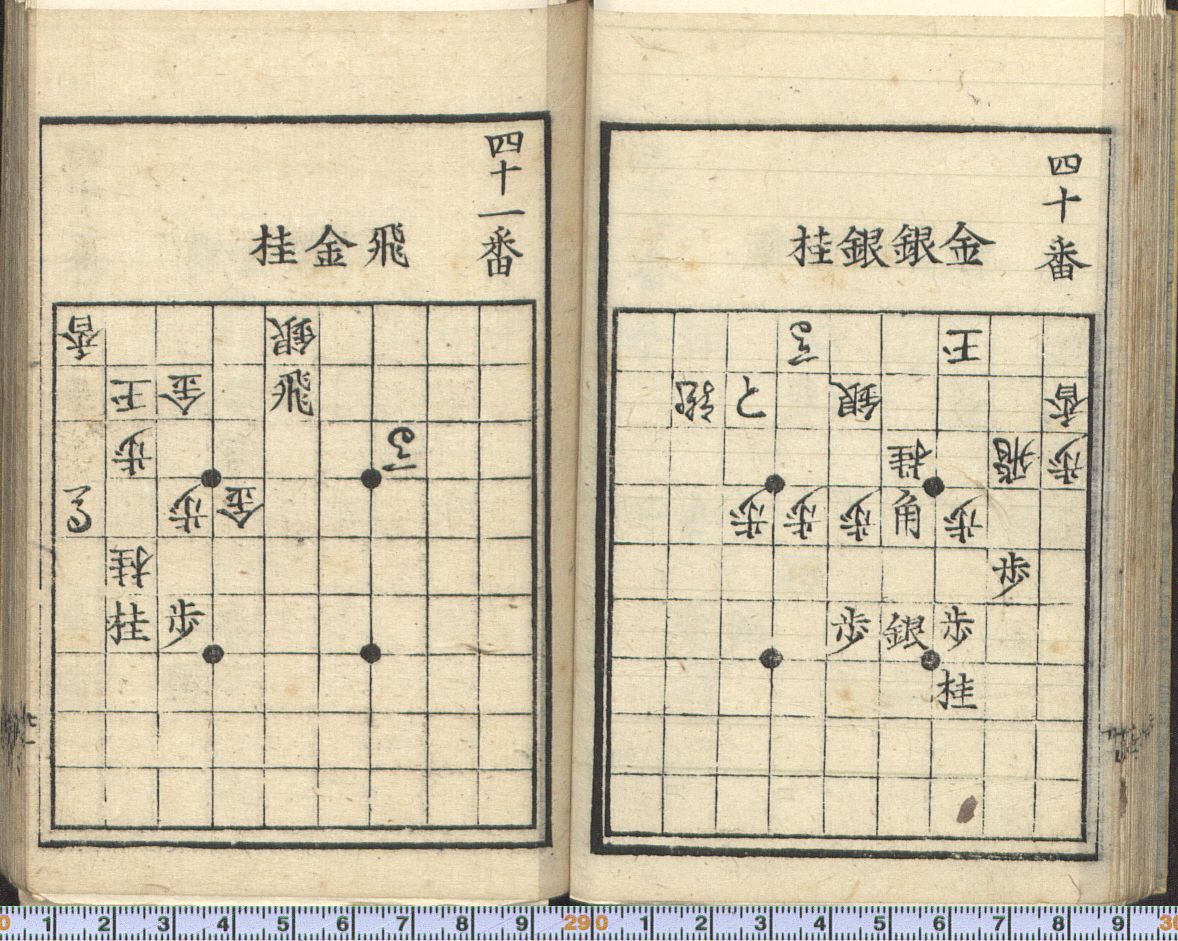 四十番
金銀銀桂
王
銀 香
桂 飛 歩
歩 歩 歩 角 歩
歩
歩 銀 歩
桂
四十一番
飛金桂
香 銀
王 金 飛
歩
歩 金
桂
桂 歩
0 1 2 3 4 5 6 7 8 9 29 0 1 2 3 4 5 6 7 8 9 30